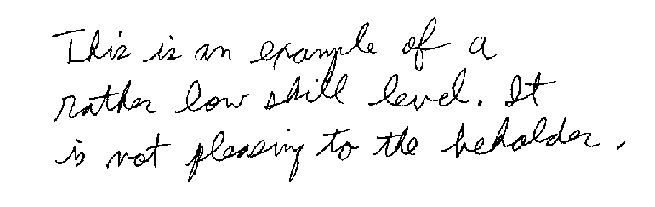 This is an example of a
rather low skill level. It
is not pleasing to the beholder.